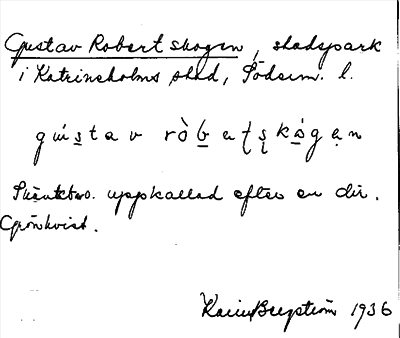 Gustav Robertskogen, stadspark
i Katrineholms stad, Söderm. l.
gu̇stav ròbeʈʂkȧgạn
Skämtvis. uppkallad efter en dir.
Grönkvist.
Karin Bergström 1936